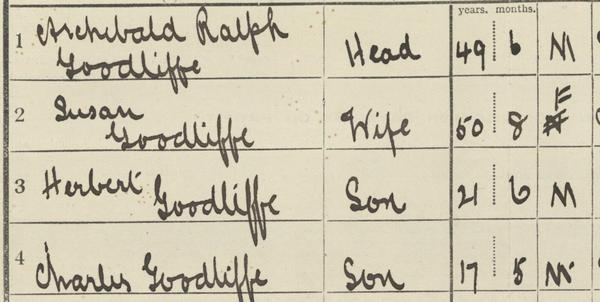 years. months.
1 Archibald Ralph
Goodliffe Head 49 6 M
2 Susan
Goodliffe Wife 50 8 F
3 Herbert Goodliffe Son 21 6 M
4 Charles Goodliffe Son 17 5 M